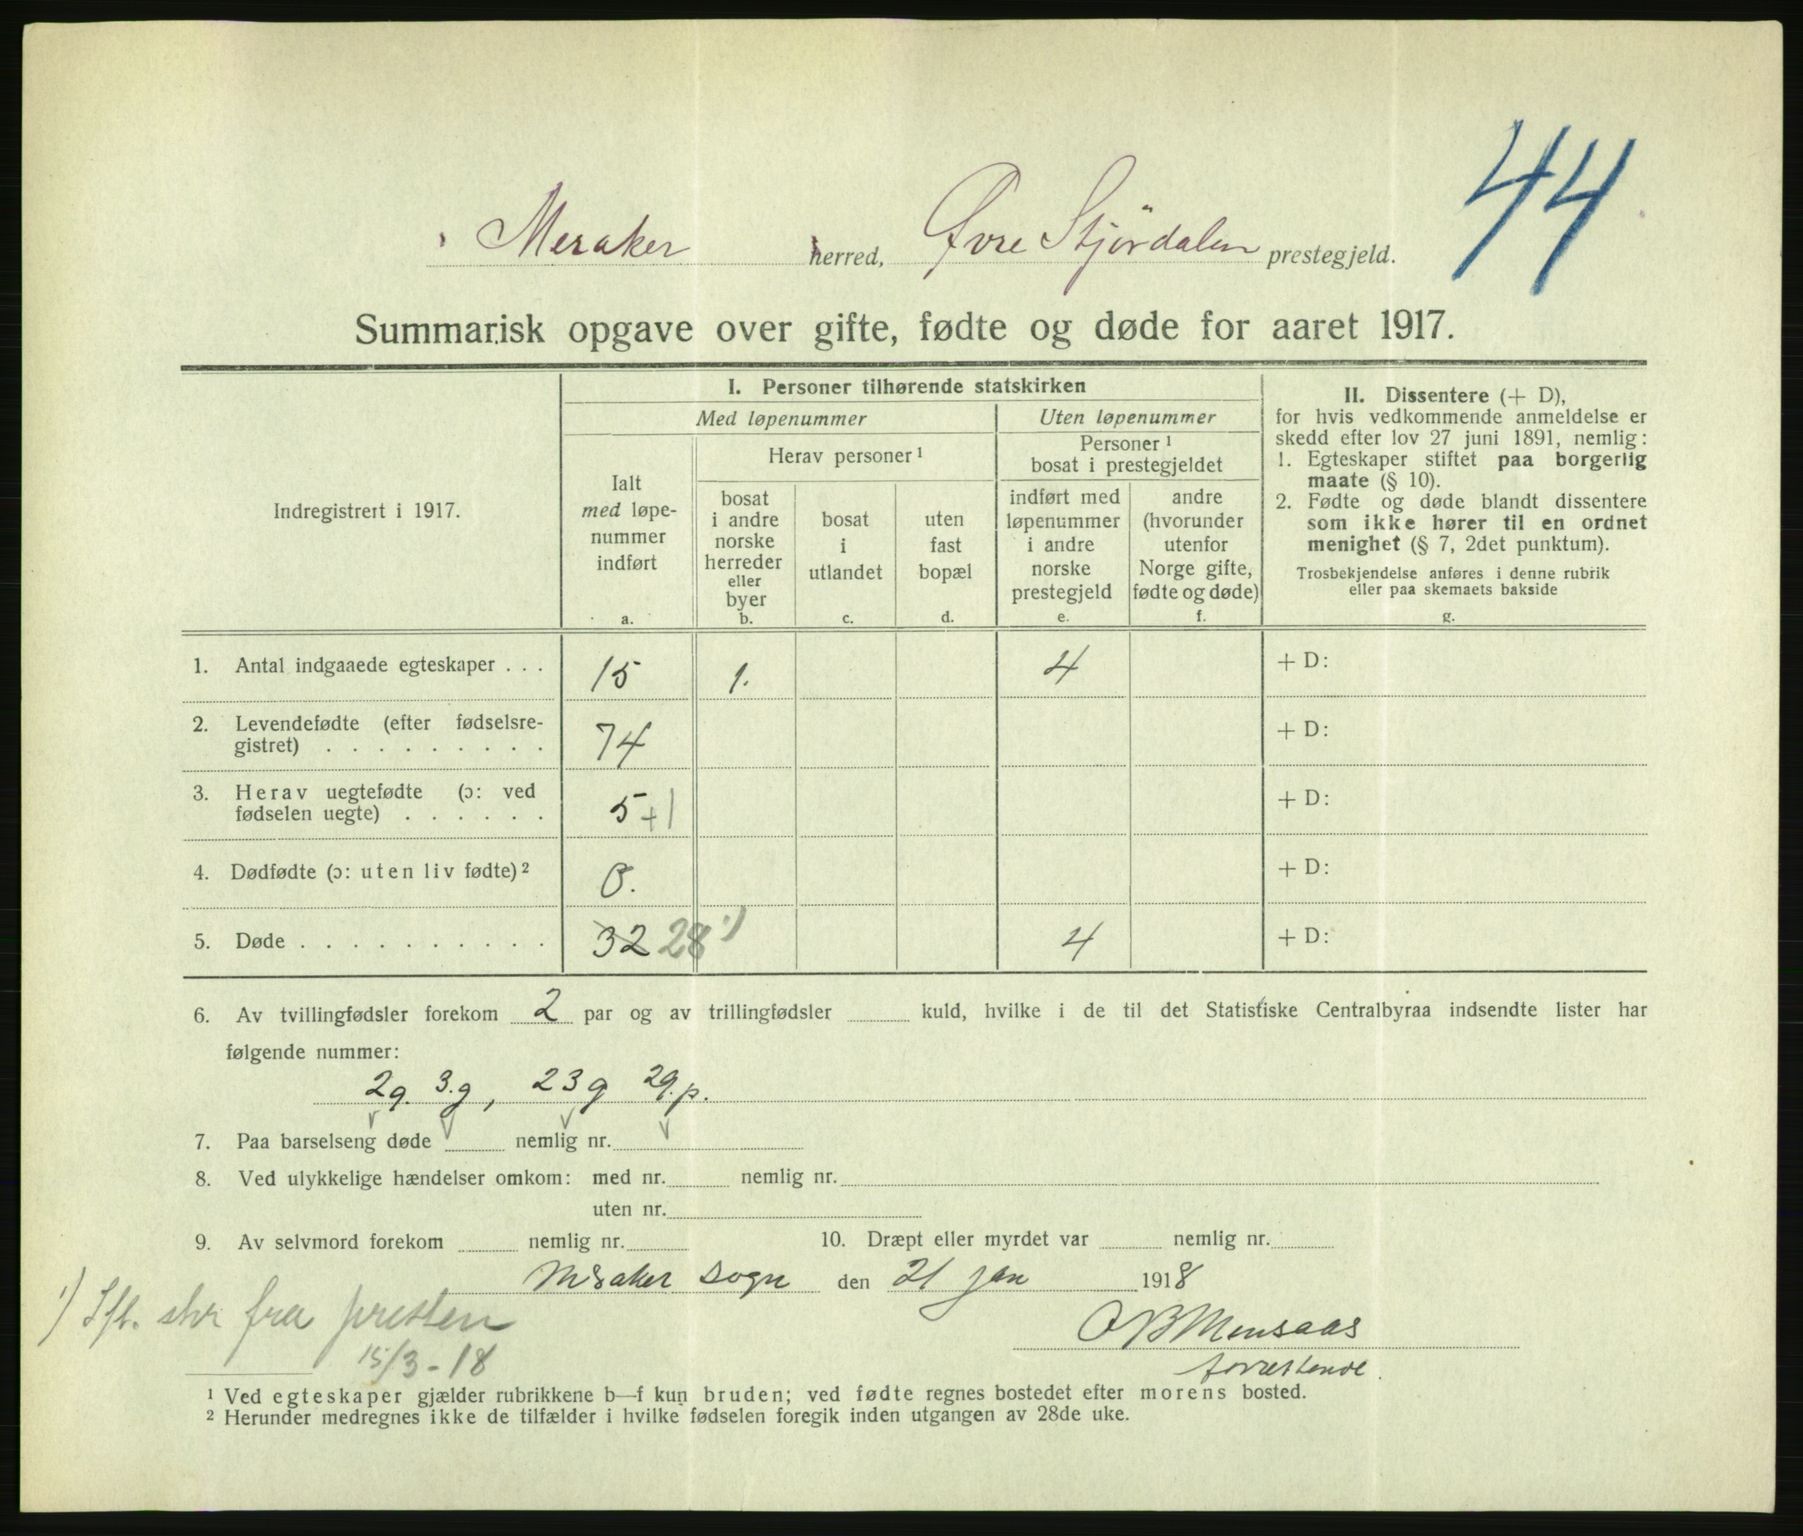 44
Meraker herred, Øvre Stjördalen prestegjeld.
Summarisk opgave over gifte, fødte og døde for aaret 1917.
Indregistrert i 1917.
I. Personer tilhørende statskirken
Med løpenummer
Uten løpenummer
Ialt
med løpe-
nummer
indført
a.
Herav personer ¹
bosat
i andre
norske
herreder
eller
byer
b.
bosat
i
utlandet
c.
uten
fast
bopæl
d.
Personer ¹
bosat i prestegjeldet
indført med
løpenummer
i andre
norske
prestegjeld
e.
andre
(hvorunder
utenfor
Norge gifte,
fødte og døde)
f.
II. Dissentere (+ D),
for hvis vedkommende anmeldelse er
skedd efter lov 27 juni 1891, nemlig:
1. Egteskaper stiftet paa borgerlig
maate (§ 10).
2. Fødte og døde blandt dissentere
som ikke hører til en ordnet
menighet (§ 7, 2det punktum).
Trosbekjendelse anføres i denne rubrik
eller paa skemaets bakside
g.
1. Antal indgaaede egteskaper . . . 15 1. 4 + D:
2. Levendefødte (efter fødselsre-
gistret) . . . . . . . . . 74 + D:
3. Herav uegtefødte (ɔ: ved
fødselen uegte) . . . . . . 5 +1 + D:
4. Dødfødte (ɔ: uten liv fødte) ² 0. + D:
5. Døde . . . . . . . . . . 32 28 ¹) 4 + D:
6. Av tvillingfødsler forekom 2 par og av trillingfødsler kuld, hvilke i de til det Statistiske Centralbyraa indsendte lister har
følgende nummer:
2g. 3.g, 23g 29.p.
7. Paa barselseng døde nemlig nr.
8. Ved ulykkelige hændelser omkom: med nr. nemlig nr.
uten nr.
9. Av selvmord forekom nemlig nr. 10. Dræpt eller myrdet var nemlig nr.
Meraker sogn den 21 jan 1918
¹) Ifl. skr fra presten
15/3-18
O B Mensaas
¹ Ved egteskaper gjælder rubrikkene b—f kun bruden; ved fødte regnes bostedet efter morens bosted.
² Herunder medregnes ikke de tilfælder i hvilke fødselen foregik inden utgangen av 28de uke.